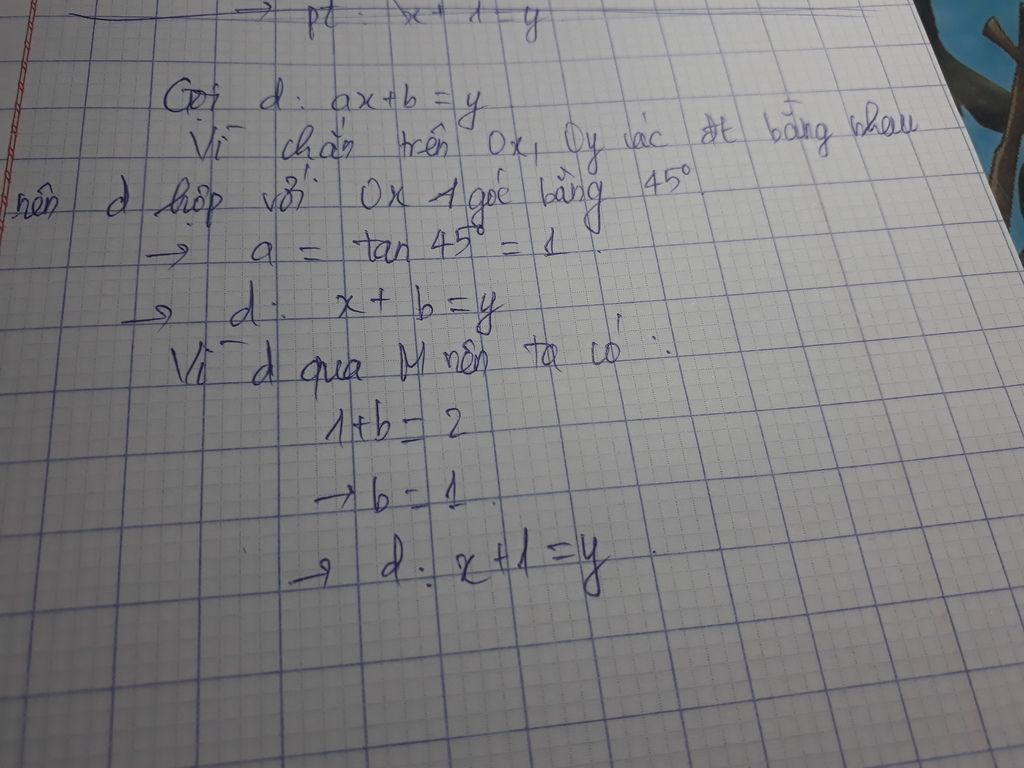 → pt: x + 1 = y
Gọi d: ax+b = y
Vì chắn trên Ox, Oy các đt bằng nhau
nên d hợp với Ox 1 góc bằng 45°
→ a = tan 45° = 1.
→ d: x + b = y
Vì d qua M nên ta có:
1+b = 2
→ b = 1.
→ d: x+1 = y.